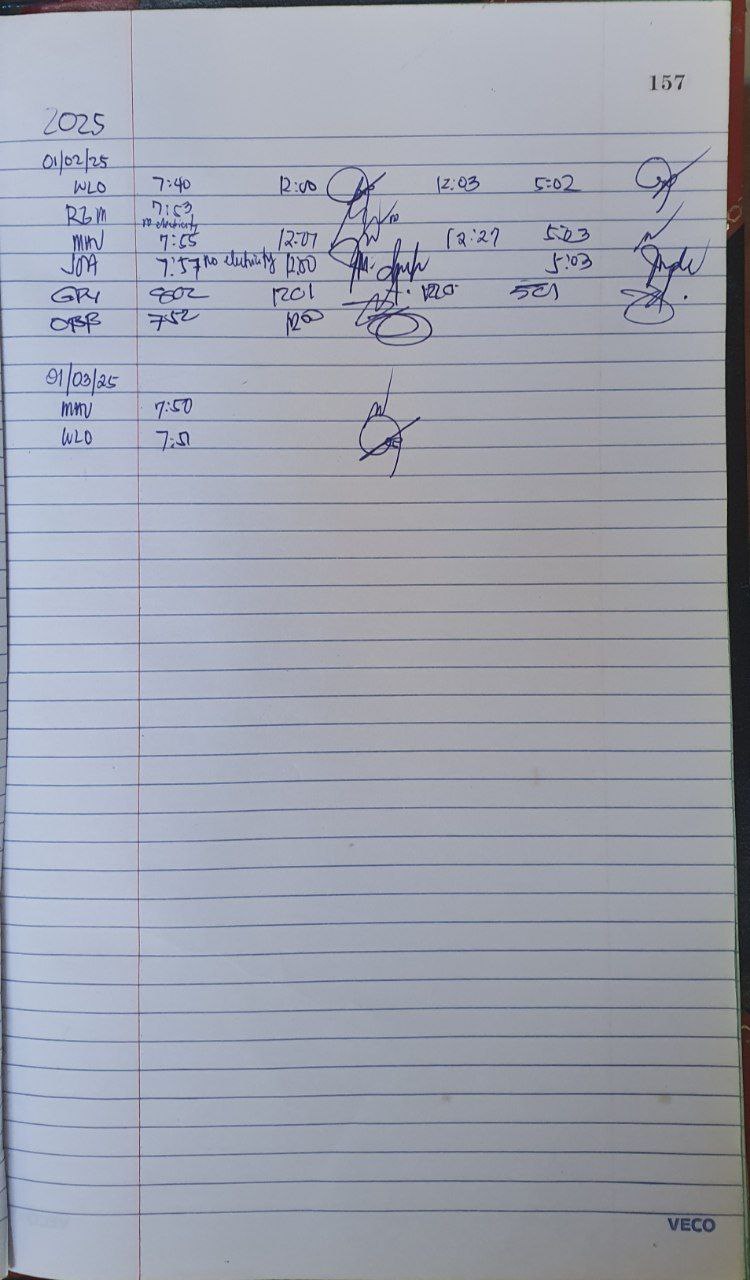 157
2025
01/02/25
WLO 7:40 12:00 12:03 5:02
RBM 7:53
no electricity
MAV 7:55 12:07 12:27 5:03
JOA 7:57 no electricity 12:00 5:03
802 1201 1220 501
OBB 752 1200
01/03/25
MAV 7:50
WLO 7:51
VECO